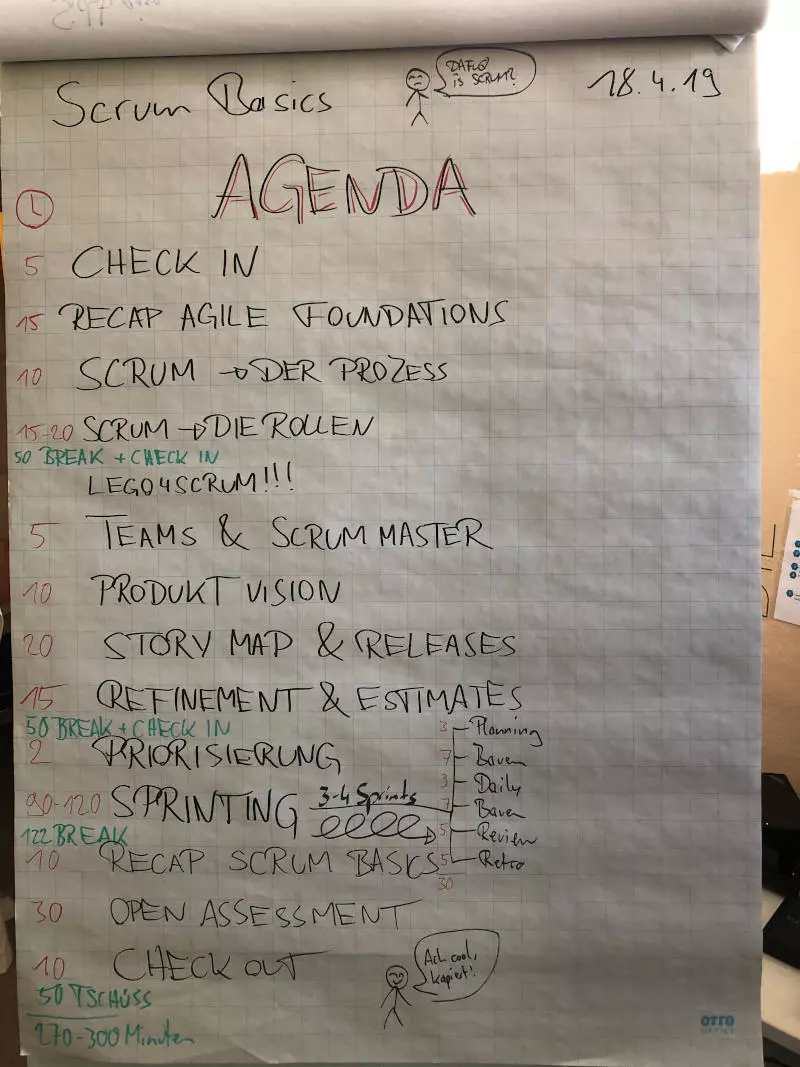 Scrum Basics
DAFUQ
is SCRUM?
18.4.19
AGENDA
5 CHECK IN
15 RECAP AGILE FOUNDATIONS
10 SCRUM → DER PROZESS
15-20 SCRUM → DIE ROLLEN
50 BREAK + CHECK IN
LEGO4SCRUM!!!
5 TEAMS & SCRUM MASTER
10 PRODUKT VISION
20 STORY MAP & RELEASES
15 REFINEMENT & ESTIMATES
50 BREAK + CHECK IN
2 PRIORISIERUNG
90-120 SPRINTING 3-4 Sprints
3 Planning
7 Bauen
3 Daily
7 Bauen
5 Review
5 Retro
30
122 BREAK
10 RECAP SCRUM BASICS
30 OPEN ASSESSMENT
10 CHECK OUT
Ach cool,
kapiert!
50 TSCHÜSS
270-300 Minuten
OTTO
OFFICE